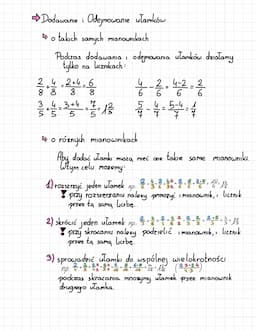 ⇒ Dodawanie i Odejmowanie ułamków
↳ o takich samych mianownikach
Podczas dodawania i odejmowania ułamków działamy
tylko na licznikach:
2/8 + 4/8 = 2+4/8 = 6/8    4/6 - 2/6 = 4-2/6 = 2/6
3/5 + 4/5 = 3+4/5 = 7/5 = 1 2/5    5/7 - 4/7 = 5-4/7 = 1/7
↳ o różnych mianownikach
Aby dodać ułamki muszą mieć one takie same mianowniki.
W tym celu możemy:
1) rozszerzyć jeden ułamek np.
przy rozszerzaniu należy pomnożyć i mianownik, i licznik
przez tą samą liczbę.
2) skrócić jeden ułamek np.
przy skracaniu należy podzielić i mianownik, i licznik
przez tą samą liczbę.
3) sprowadzić ułamki do wspólnej wielokrotności
np.
podczas skracania mnożymy ułamek przez mianownik
drugiego ułamka.